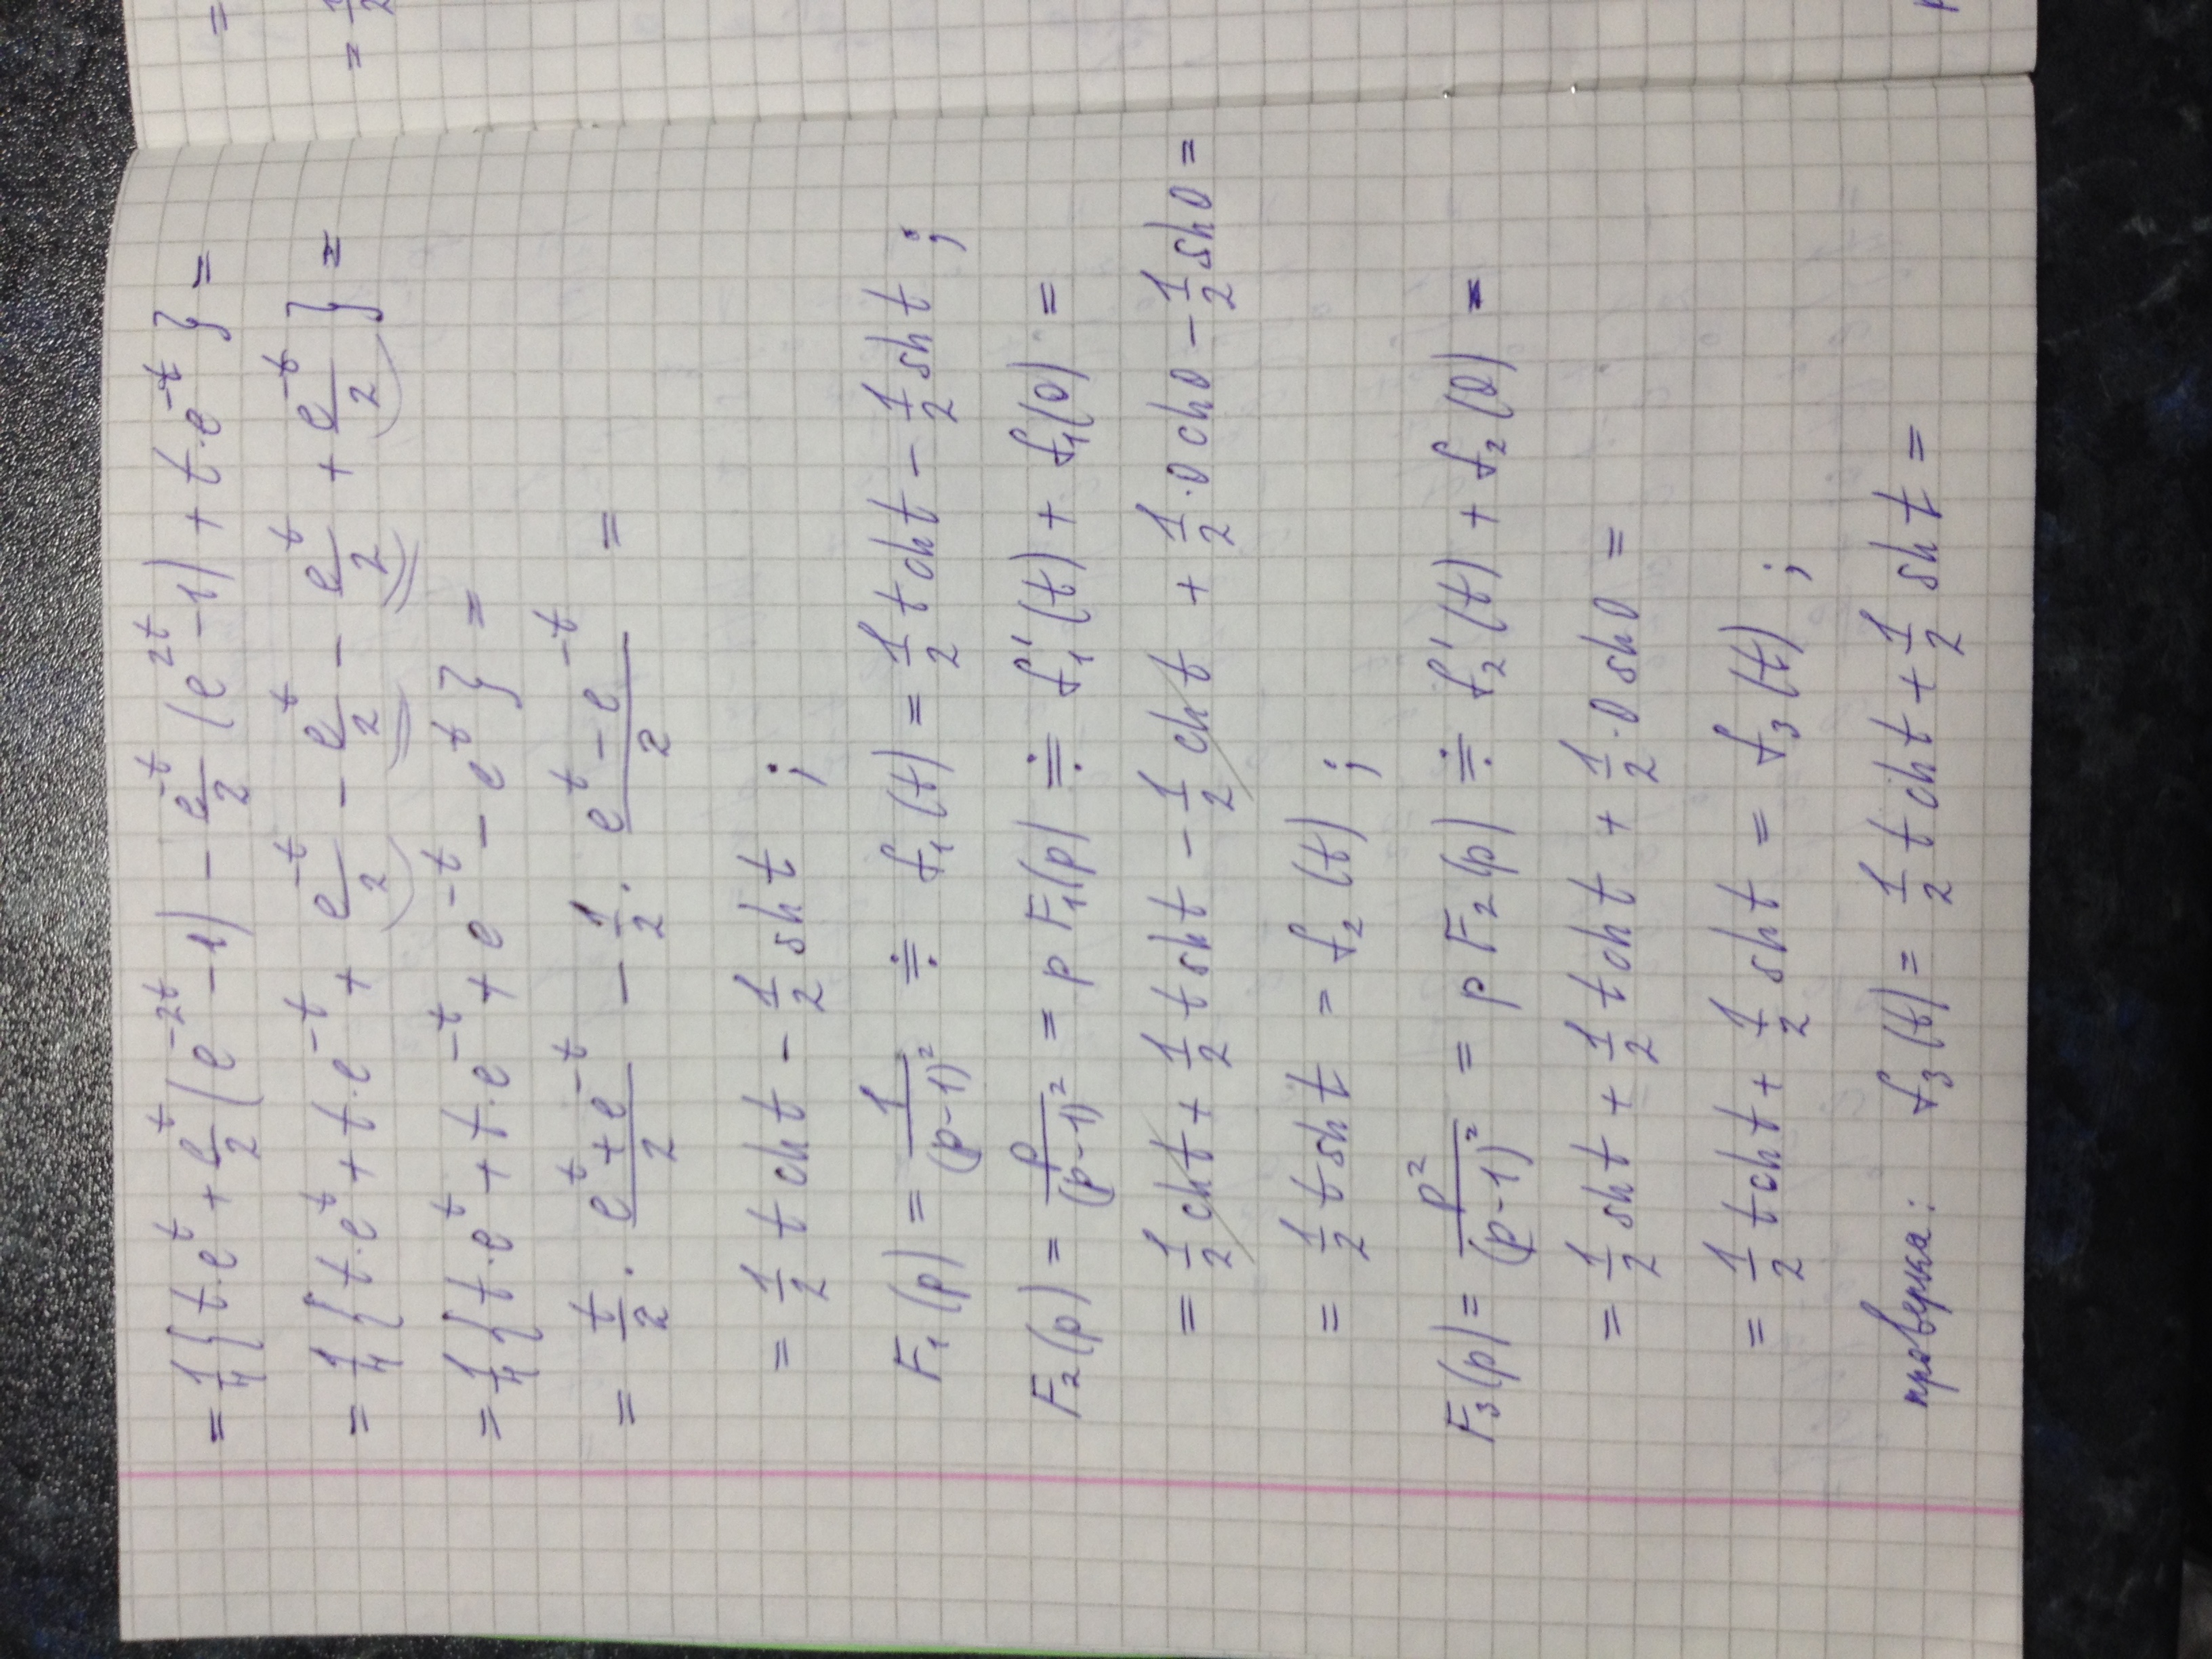 = 1/4 { t·e^t + e^t/2 (e^{-2t} - 1) - e^{-t}/2 (e^{2t} - 1) + t·e^{-t} } =
= 1/4 { t·e^t + t·e^{-t} + e^{-t}/2 - e^t/2 - e^t/2 + e^{-t}/2 } =
= 1/4 { t·e^t + t·e^{-t} + e^{-t} - e^t } =
= t/2 · (e^t + e^{-t})/2 - 1/2 · (e^t - e^{-t})/2 =
= 1/2 t ch t - 1/2 sh t ;
F₁(p) = 1/(p-1)² ≓ f₁(t) = 1/2 t ch t - 1/2 sh t ;
F₂(p) = p/(p-1)² = p F₁(p) ≓ f₁'(t) + f₁(0) =
= 1/2 ch t + 1/2 t sh t - 1/2 ch t + 1/2 · 0 ch 0 - 1/2 sh 0 =
= 1/2 t sh t = f₂(t) ;
F₃(p) = p²/(p-1)² = p F₂(p) ≓ f₂'(t) + f₂(0) =
= 1/2 sh t + 1/2 t ch t + 1/2 · 0 sh 0 =
= 1/2 t ch t + 1/2 sh t = f₃(t) ;
проверка: f₃(t) = 1/2 t ch t + 1/2 sh t =